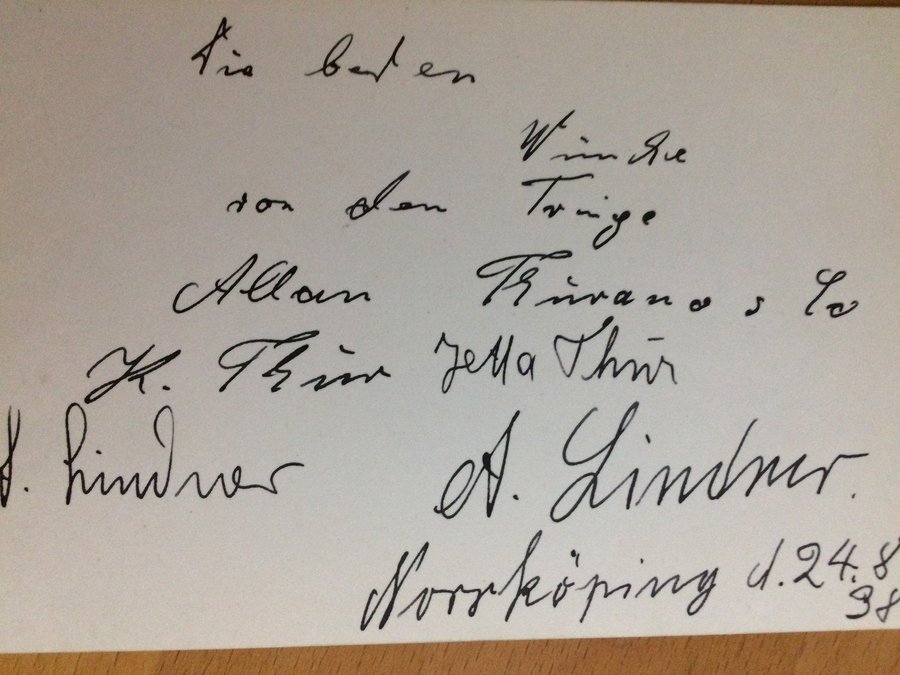 Die besten
Wünsche
von den
Allan Thürano & Co
K. Thür Jetta Thür
Lindner A. Lindner.
Norrköping d. 24. 8
38